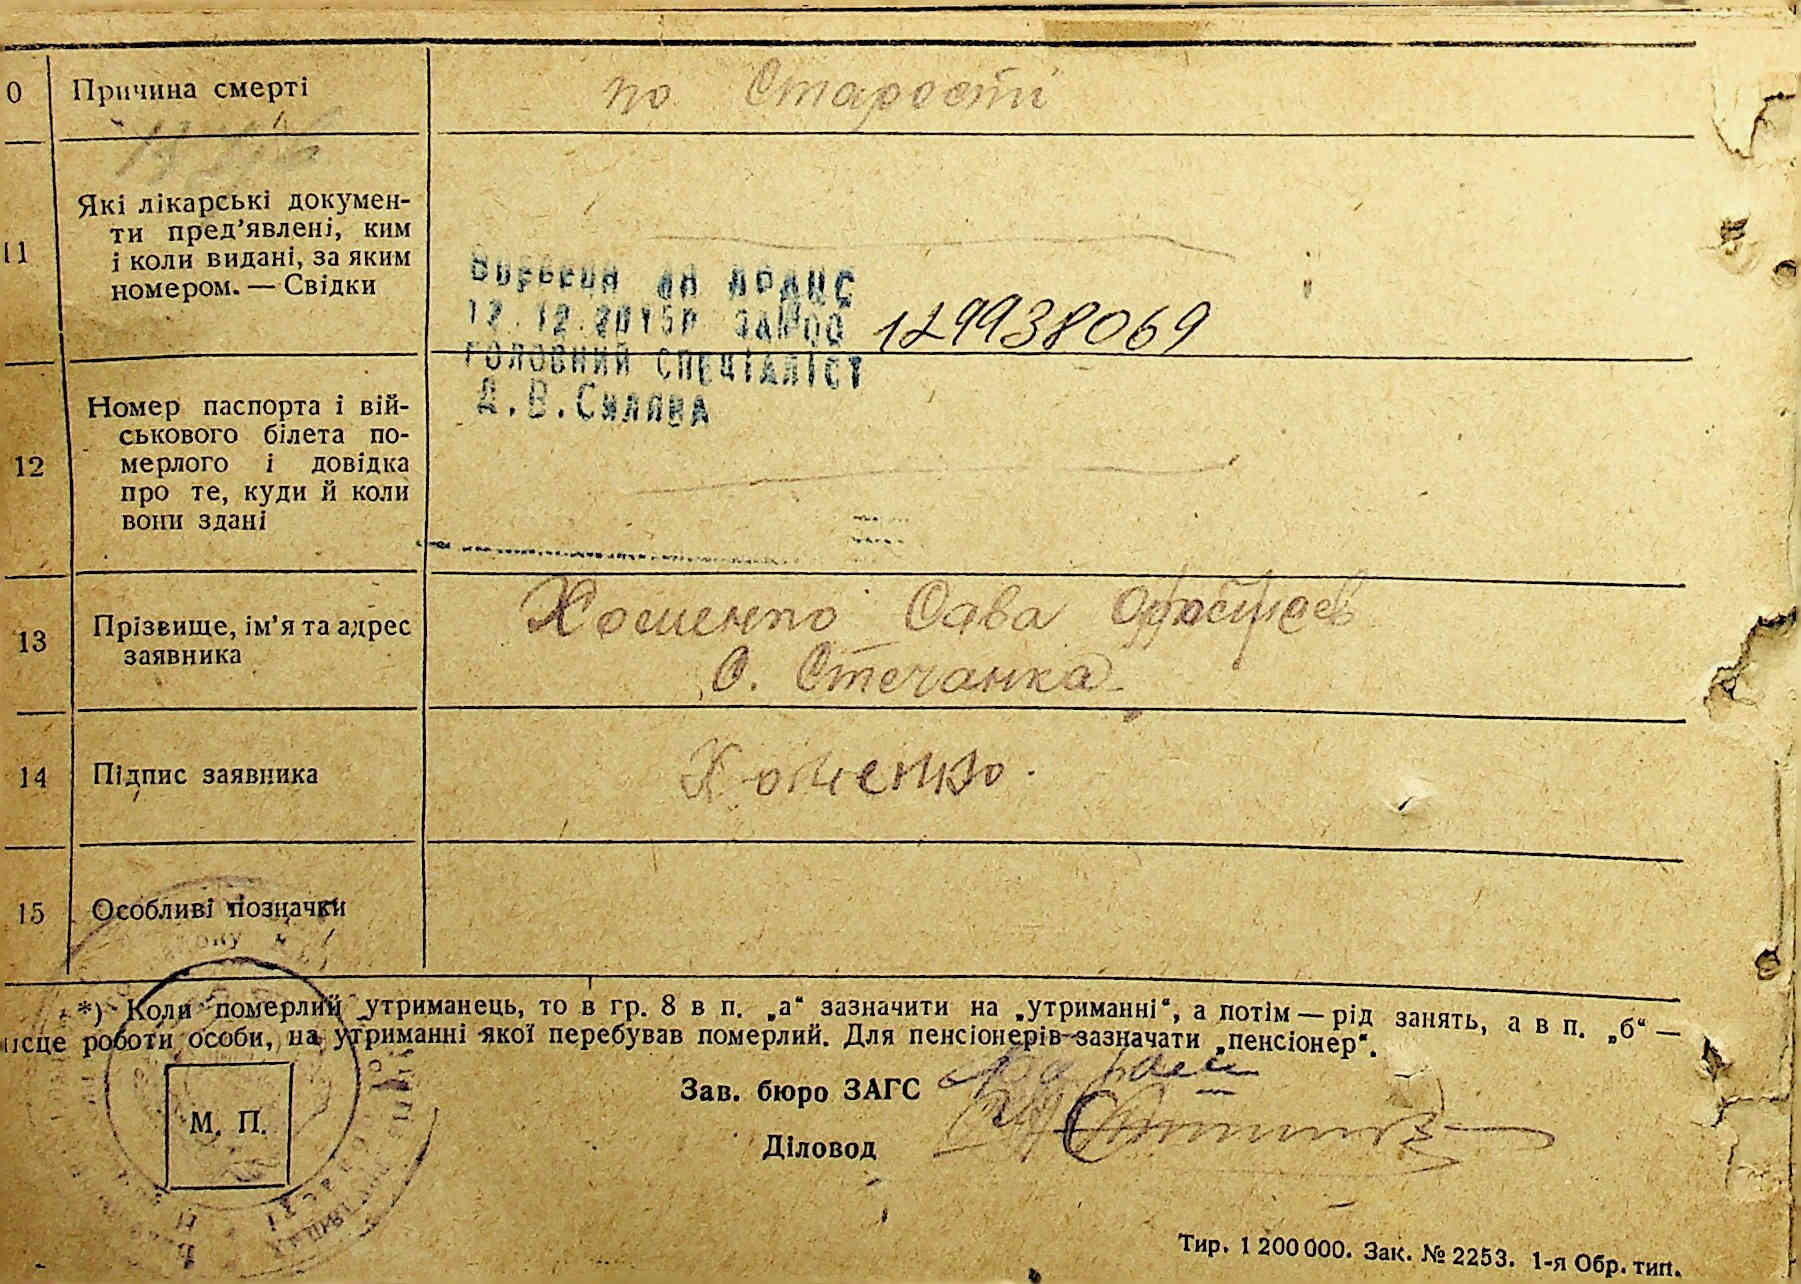 0 Причина смерті по Старости
11 Які лікарські докумен-
ти пред’явлені, ким
і коли видані, за яким
номером. — Свідки
на ДРАЦС
12.12.2015р 129938069
ГОЛОВНИЙ СПЕЦІАЛІСТ
Д.В.
12 Номер паспорта і вій-
ськового білета по-
мерлого і довідка
про те, куди й коли
вони здані
13 Прізвище, ім’я та адрес
заявника
Хоменко Сава
С. Степанка
14 Підпис заявника Хоменко.
15 Особливі позначки
*) Коли померлий утриманець, то в гр. 8 в п. „а“ зазначити на „утриманні“, а потім — рід занять, а в п. „б“ —
місце роботи особи, на утриманні якої перебував померлий. Для пенсіонерів зазначати „пенсіонер“.
Зав. бюро ЗАГС
М. П.
Діловод
Тир. 1 200 000. Зак. № 2253. 1-я Обр. тип.